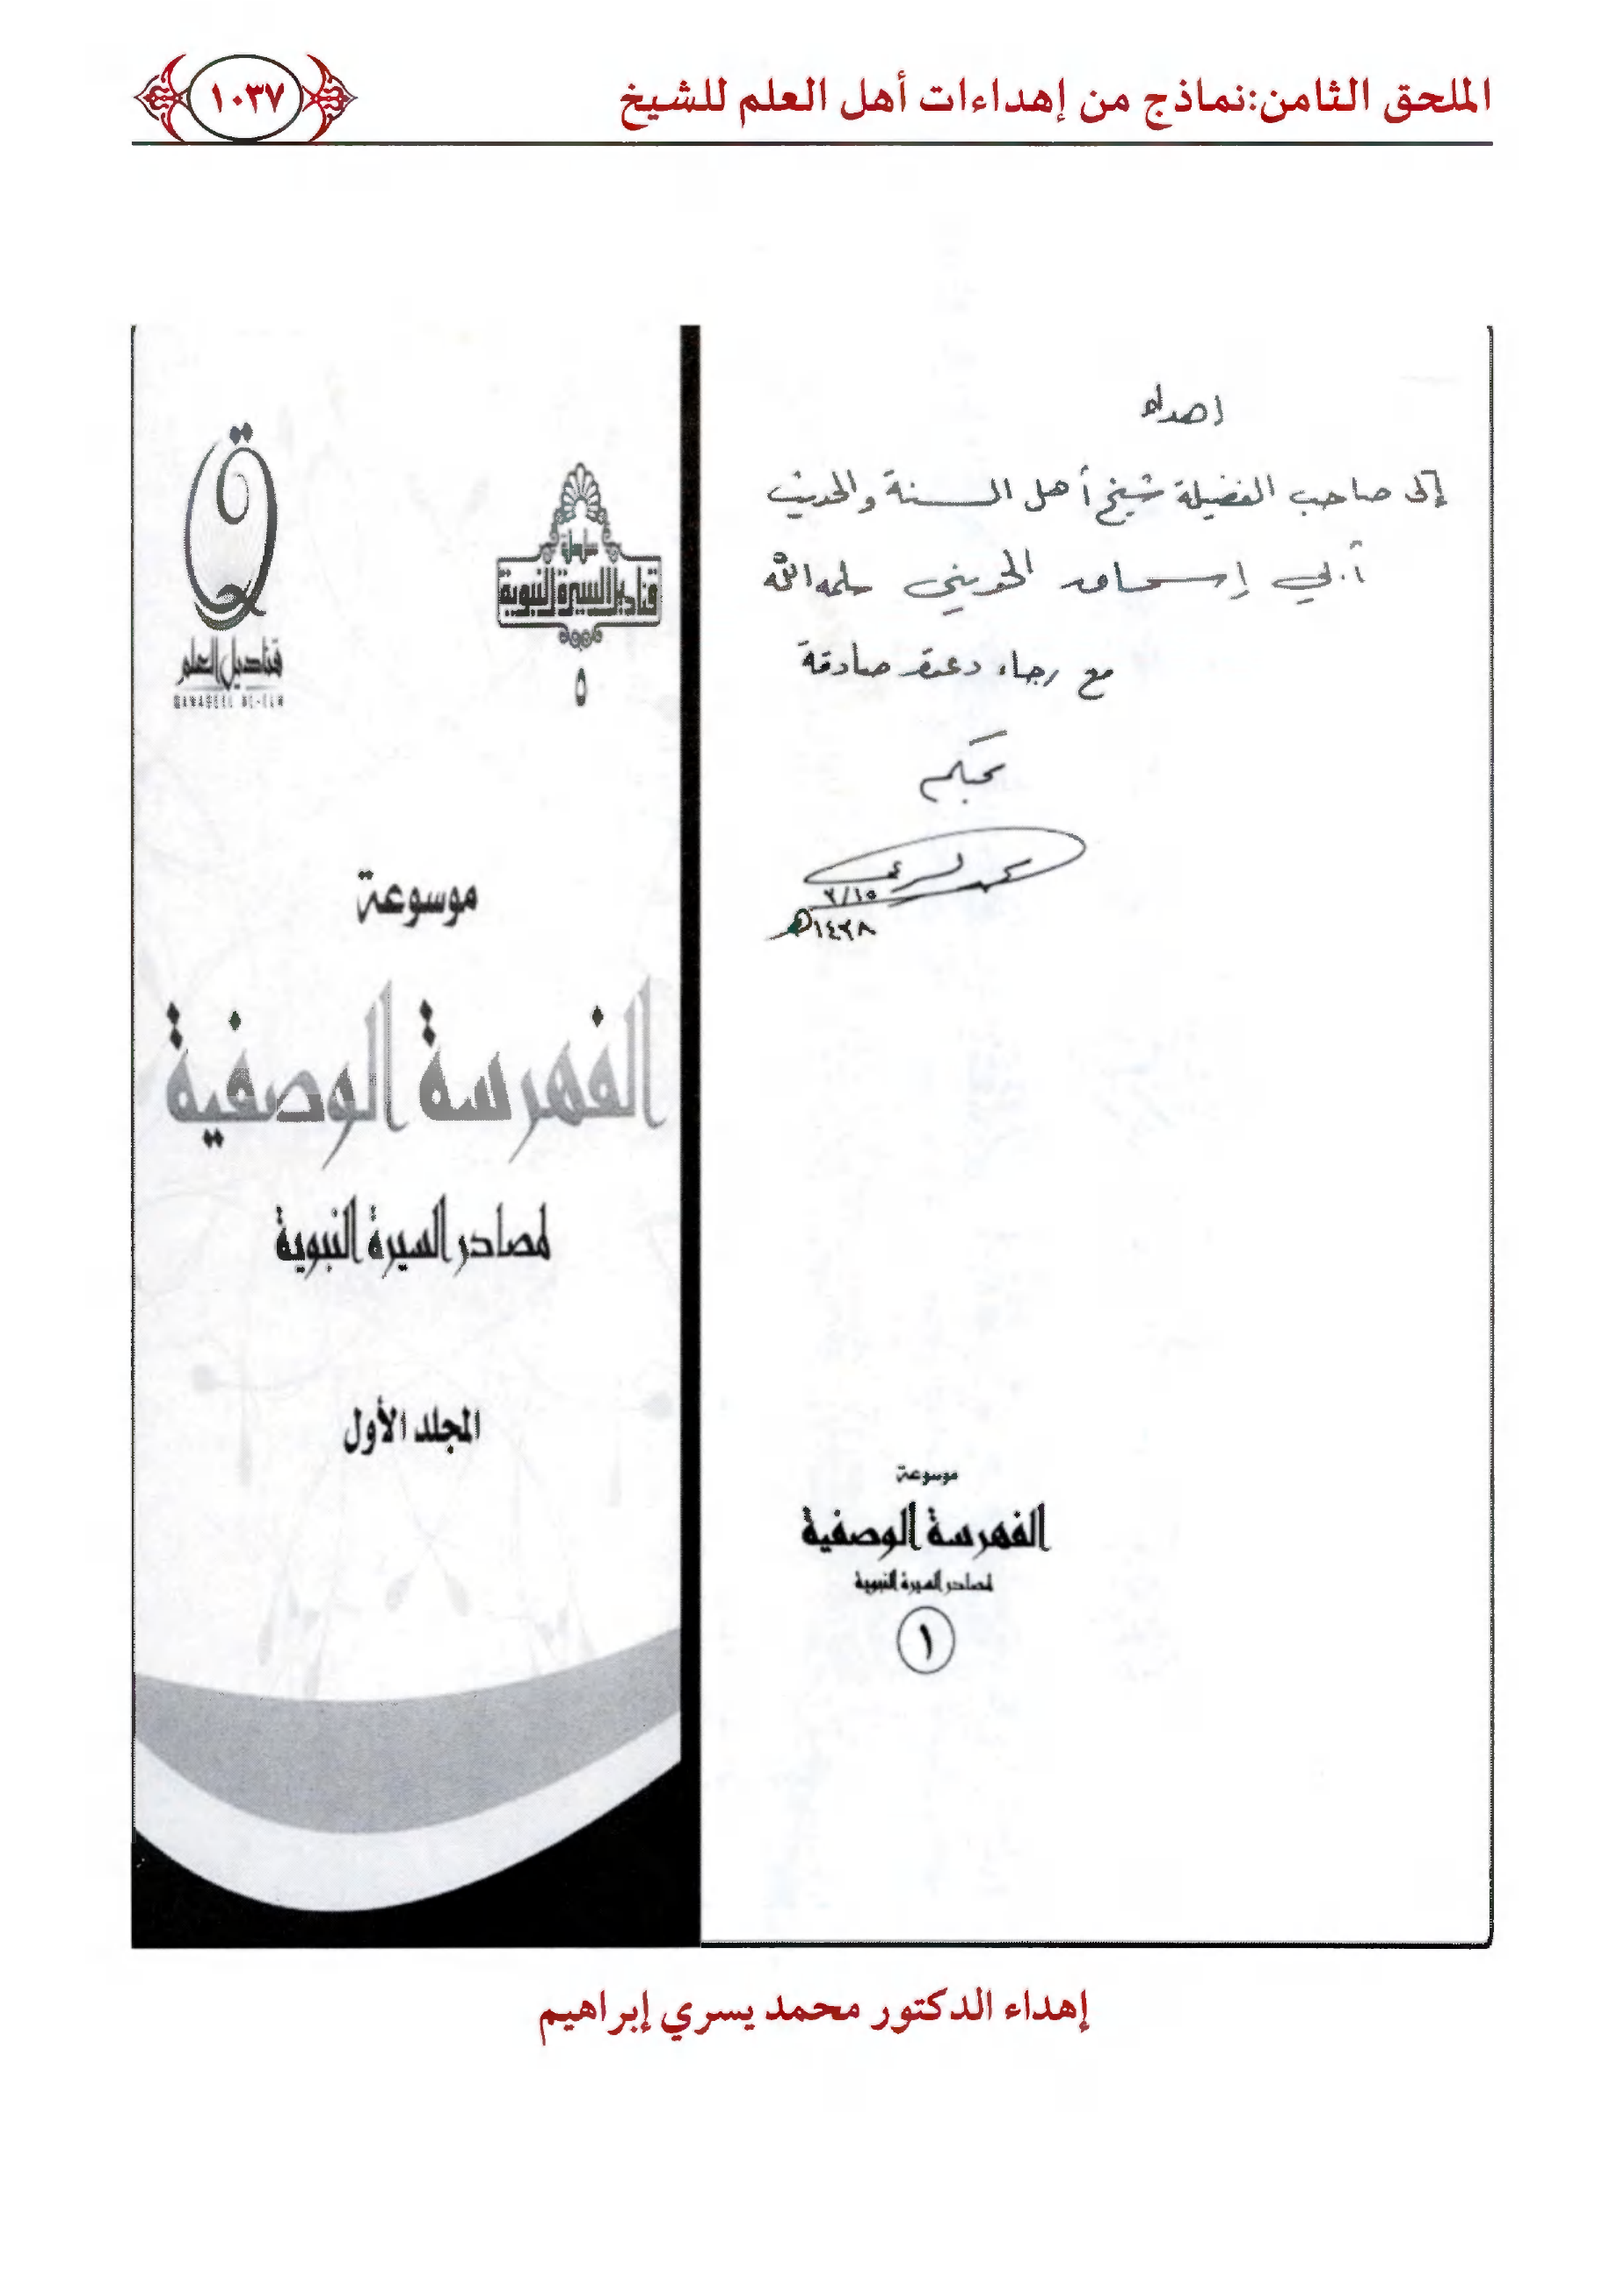 الملحق الثامن:نماذج من إهداءات أهل العلم للشيخ
١٠٣٧
إهداء
إلى صاحب الفضيلة شيخ أهل السنة والحديث
أبي إسحاق الحويني سلمه الله
مع رجاء دعوة صادقة
محبكم
١٤٣٨هـ
موسوعة
الفهرسة الوصفية
لمصادر السيرة النبوية
١
سلسلة
قناديل السيرة النبوية
٥
قناديل العلم
QANADEEL AL-ELM
موسوعة
الفهرسة الوصفية
لمصادر السيرة النبوية
المجلد الأول
إهداء الدكتور محمد يسري إبراهيم